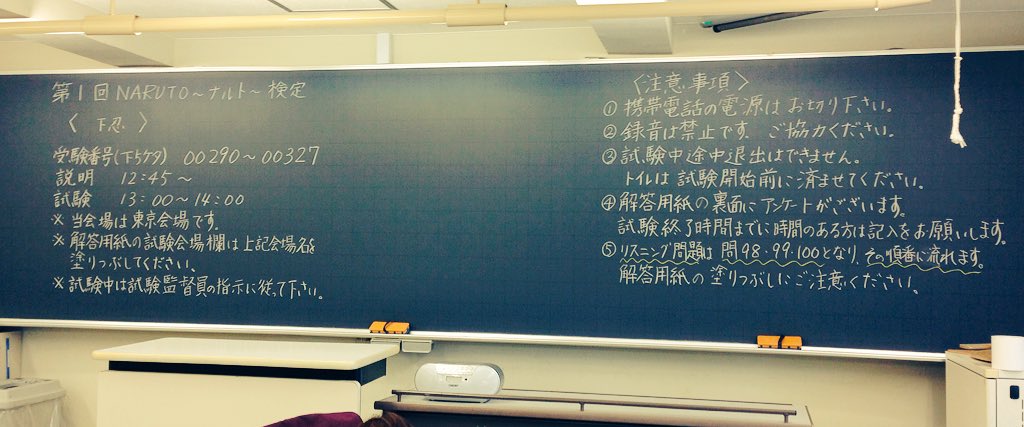 第1回 NARUTO～ナルト～ 検定
〈 下忍 〉
受験番号(下5ケタ) 00290～00327
説明 12:45～
試験 13:00～14:00
※ 当会場は東京会場です。
※ 解答用紙の試験会場欄は上記会場名を
塗りつぶしてください。
※試験中は試験監督員の指示に従って下さい。
〈注意事項〉
① 携帯電話の電源はお切り下さい。
② 録音は禁止です ご協力ください。
③ 試験中途中退出はできません。
トイレは試験開始前に済ませてください。
④ 解答用紙の裏面にアンケートがございます。
試験終了時間までに時間のある方は記入をお願いします。
⑤ リスニング問題は 問98・99・100となり、その順番に流れます。
解答用紙の塗りつぶしにご注意ください。